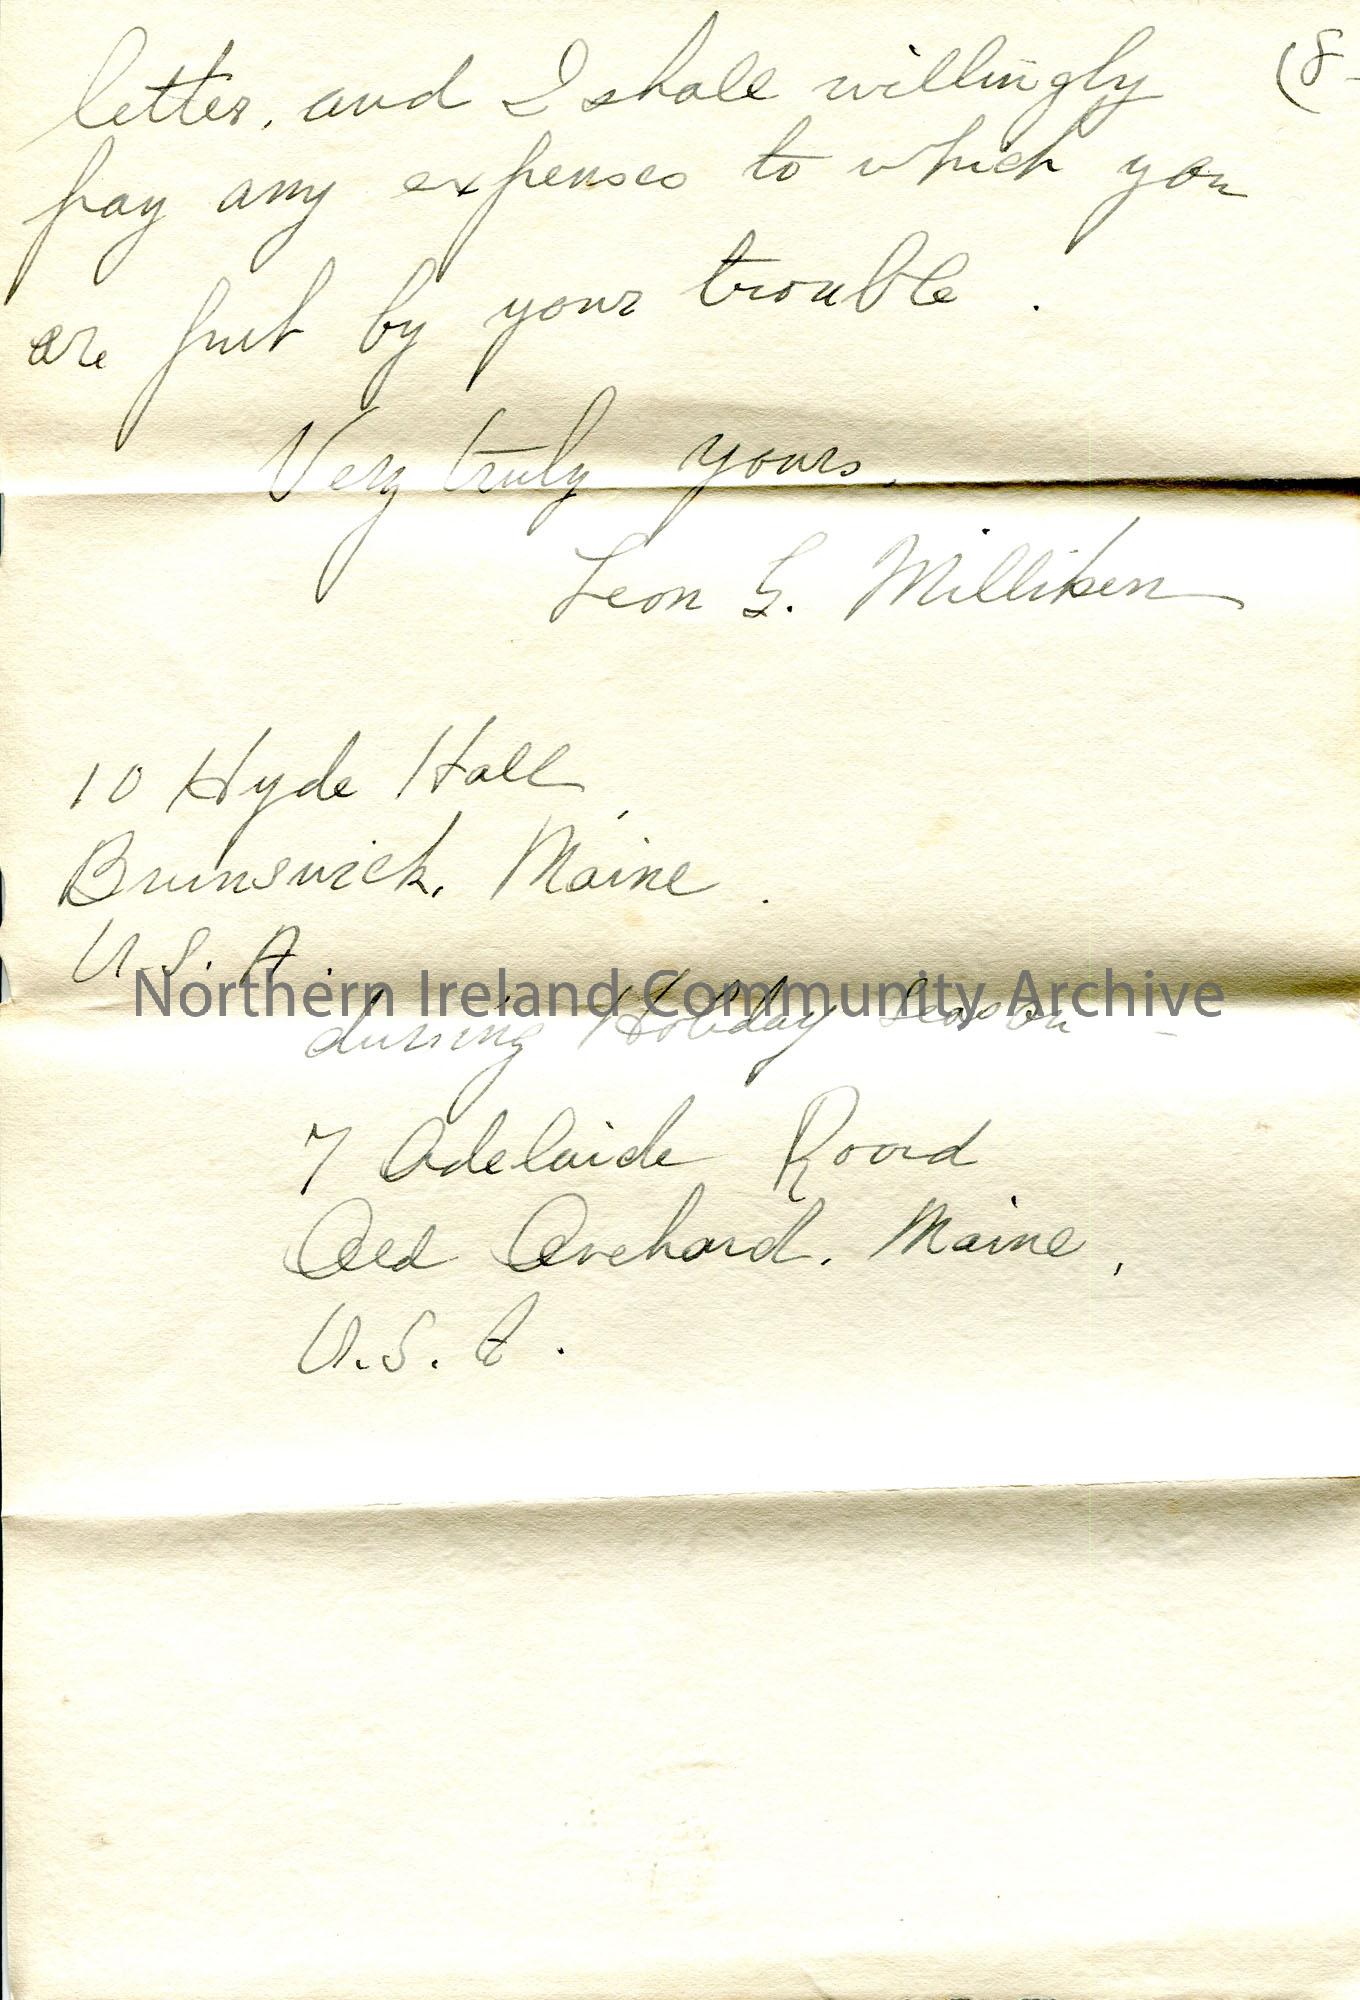 (8-
letter, and I shall willingly
pay any expenses to which you
are put by your trouble.
Very truly yours,
Leon G. Milliken
10 Hyde Hall,
Brunswick, Maine.
U.S.A.
Northern Ireland Community Archive
during Holiday Season -
7 Adelaide Road
Old Orchard, Maine,
U.S.A.